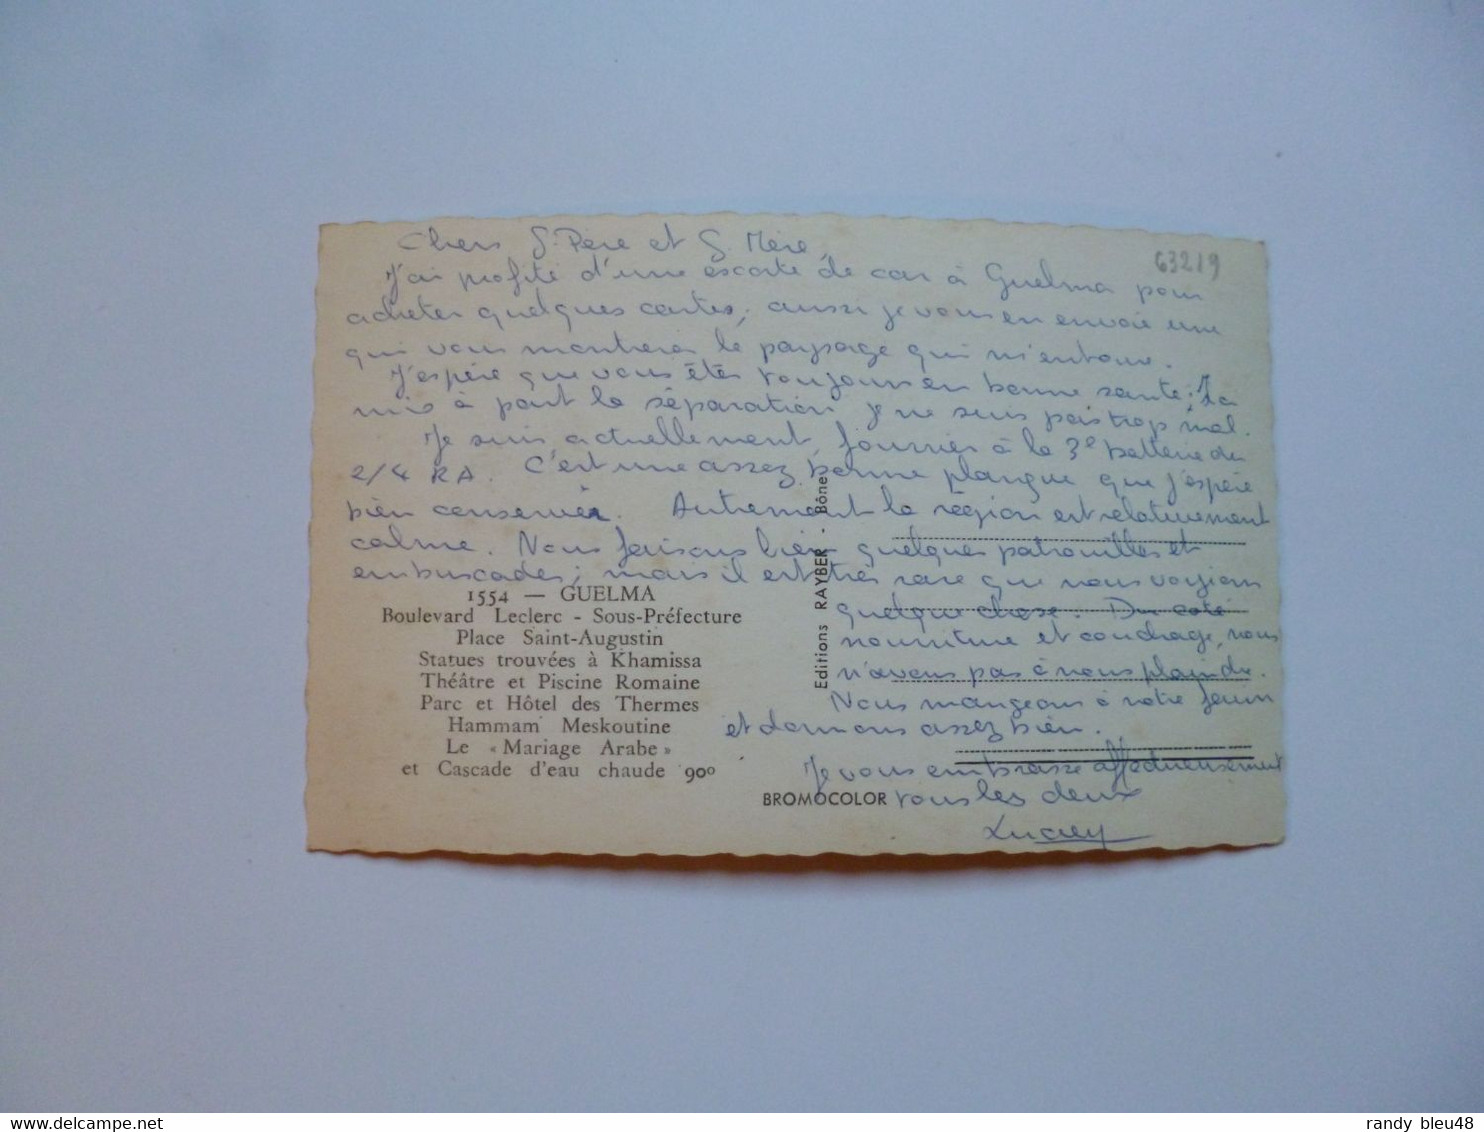 Chers G. Père et G. Mère,
63219
J'ai profité d'une escorte de car à Guelma pour
acheter quelques cartes, aussi je vous en envoie une
qui vous montrera le paysage qui m'entoure.
J'espère que vous êtes toujours en bonne santé;
mis à part la séparation, je ne suis pas trop mal.
Je suis actuellement, fourrier à la 3e batterie du
2/4 RA. C'est une assez bonne planque que j'espère
bien conserver. Autrement la région est relativement
calme. Nous faisons bien quelques patrouilles et
embuscades; mais il est très rare que nous voyions
quelque chose. Du coté
nourriture et couchage, nous
n'avons pas à nous plaindre.
Nous mangeons à notre faim
et dormons assez bien.
Je vous embrasse affectueusement
tous les deux
1554 — GUELMA
Boulevard Leclerc - Sous-Préfecture
Place Saint-Augustin
Statues trouvées à Khamissa
Théâtre et Piscine Romaine
Parc et Hôtel des Thermes
Hammam Meskoutine
Le « Mariage Arabe »
et Cascade d'eau chaude 90°
Editions RAYBER - Bône
BROMOCOLOR
delcampe.net
randy_bleu48